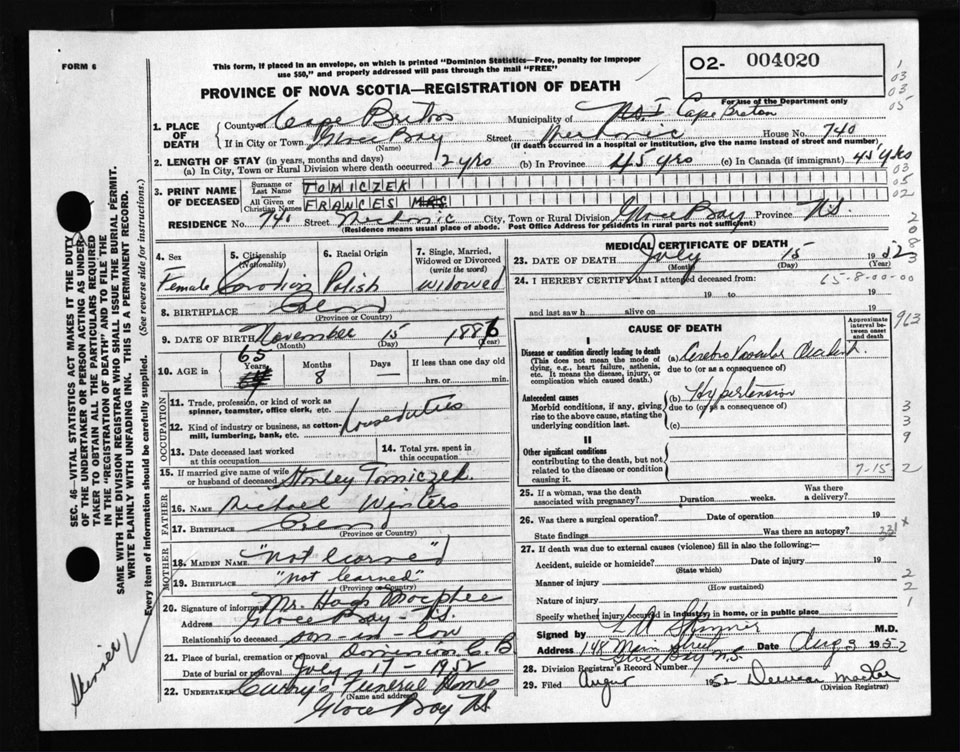 FORM 6
This form, if placed in an envelope, on which is printed "Dominion Statistics—Free, penalty for improper
use $50," and properly addressed will pass through the mail "FREE"
O2- 004020
For use of the Department only
PROVINCE OF NOVA SCOTIA—REGISTRATION OF DEATH
1. PLACE OF DEATH
County of Cape Breton
Municipality of Cape Breton
If in City or Town Glace Bay (Name) Street Mechanic House No. 740
(If death occurred in a hospital or institution, give the name instead of street and number)
2. LENGTH OF STAY (in years, months and days)
(a) In City, Town or Rural Division where death occurred 2 yrs (b) In Province 45 yrs (c) In Canada (if immigrant) 45 yrs
3. PRINT NAME OF DECEASED
Surname or Last Name TOMICZEK
All Given or Christian Names FRANCES MRS
RESIDENCE No. 740 Street Mechanic City, Town or Rural Division Glace Bay Province N.S.
(Residence means usual place of abode. Post Office Address for residents in rural parts not sufficient)
4. Sex Female
5. Citizenship (Nationality) Canadian
6. Racial Origin Polish
7. Single, Married, Widowed or Divorced (write the word) Widowed
8. BIRTHPLACE Poland
(Province or Country)
9. DATE OF BIRTH November 15 1886
(Month) (Day) (Year)
10. AGE in 65 Years Months 8 Days — If less than one day old
hrs. or min.
OCCUPATION
11. Trade, profession, or kind of work as spinner, teamster, office clerk, etc. houseduties
12. Kind of industry or business, as cotton-mill, lumbering, bank, etc.
13. Date deceased last worked at this occupation
14. Total yrs. spent in this occupation
15. If married give name of wife or husband of deceased Stanley Tomiczek
FATHER
16. NAME Michael Winters
17. BIRTHPLACE Poland
(Province or Country)
MOTHER
18. MAIDEN NAME "not learned"
19. BIRTHPLACE "not learned"
(Province or Country)
20. Signature of informant Mr. Hugh Macphee
Address Glace Bay - N.S.
Relationship to deceased son-in-law
21. Place of burial, cremation or removal Dominion C.B
Date of burial or removal July - 17 - 1952
22. Undertaker Curry's Funeral Homes
(Name and address)
Glace Bay N.S.
MEDICAL CERTIFICATE OF DEATH
23. DATE OF DEATH July 15 1952
(Month) (Day) (Year)
24. I HEREBY CERTIFY that I attended deceased from:
19 to 19
and last saw h alive on 19
CAUSE OF DEATH
Approximate interval between onset and death
I
Disease or condition directly leading to death
(This does not mean the mode of dying, e.g., heart failure, asthenia, etc. It means the disease, injury, or complication which caused death.)
(a) Cerebro Vascular Accident
due to (or as a consequence of)
Antecedent causes
Morbid conditions, if any, giving rise to the above cause, stating the underlying condition last.
(b) Hypertension
due to (or as a consequence of)
(c)
II
Other significant conditions
contributing to the death, but not related to the disease or condition causing it.
7-15
25. If a woman, was the death associated with pregnancy? Duration weeks. Was there a delivery?
26. Was there a surgical operation? Date of operation 19
State findings Was there an autopsy?
27. If death was due to external causes (violence) fill in also the following:—
Accident, suicide or homicide? Date of injury 19
(State which)
Manner of injury
(How sustained)
Nature of injury
Specify whether injury occurred in industry, in home, or in public place
Signed by M.D.
Address 148 Main Street Date Aug 3 1952
Glace Bay N.S.
28. Division Registrar's Record Number
29. Filed August 1952
(Division Registrar)
SEC. 46—VITAL STATISTICS ACT MAKES IT THE DUTY
OF THE UNDERTAKER OR PERSON ACTING AS UNDERTAKER TO OBTAIN ALL THE PARTICULARS REQUIRED
IN THE "REGISTRATION OF DEATH" AND TO FILE THE
SAME WITH THE DIVISION REGISTRAR WHO SHALL ISSUE THE BURIAL PERMIT.
WRITE PLAINLY WITH UNFADING INK. THIS IS A PERMANENT RECORD.
Every item of information should be carefully supplied. (See reverse side for instructions.)